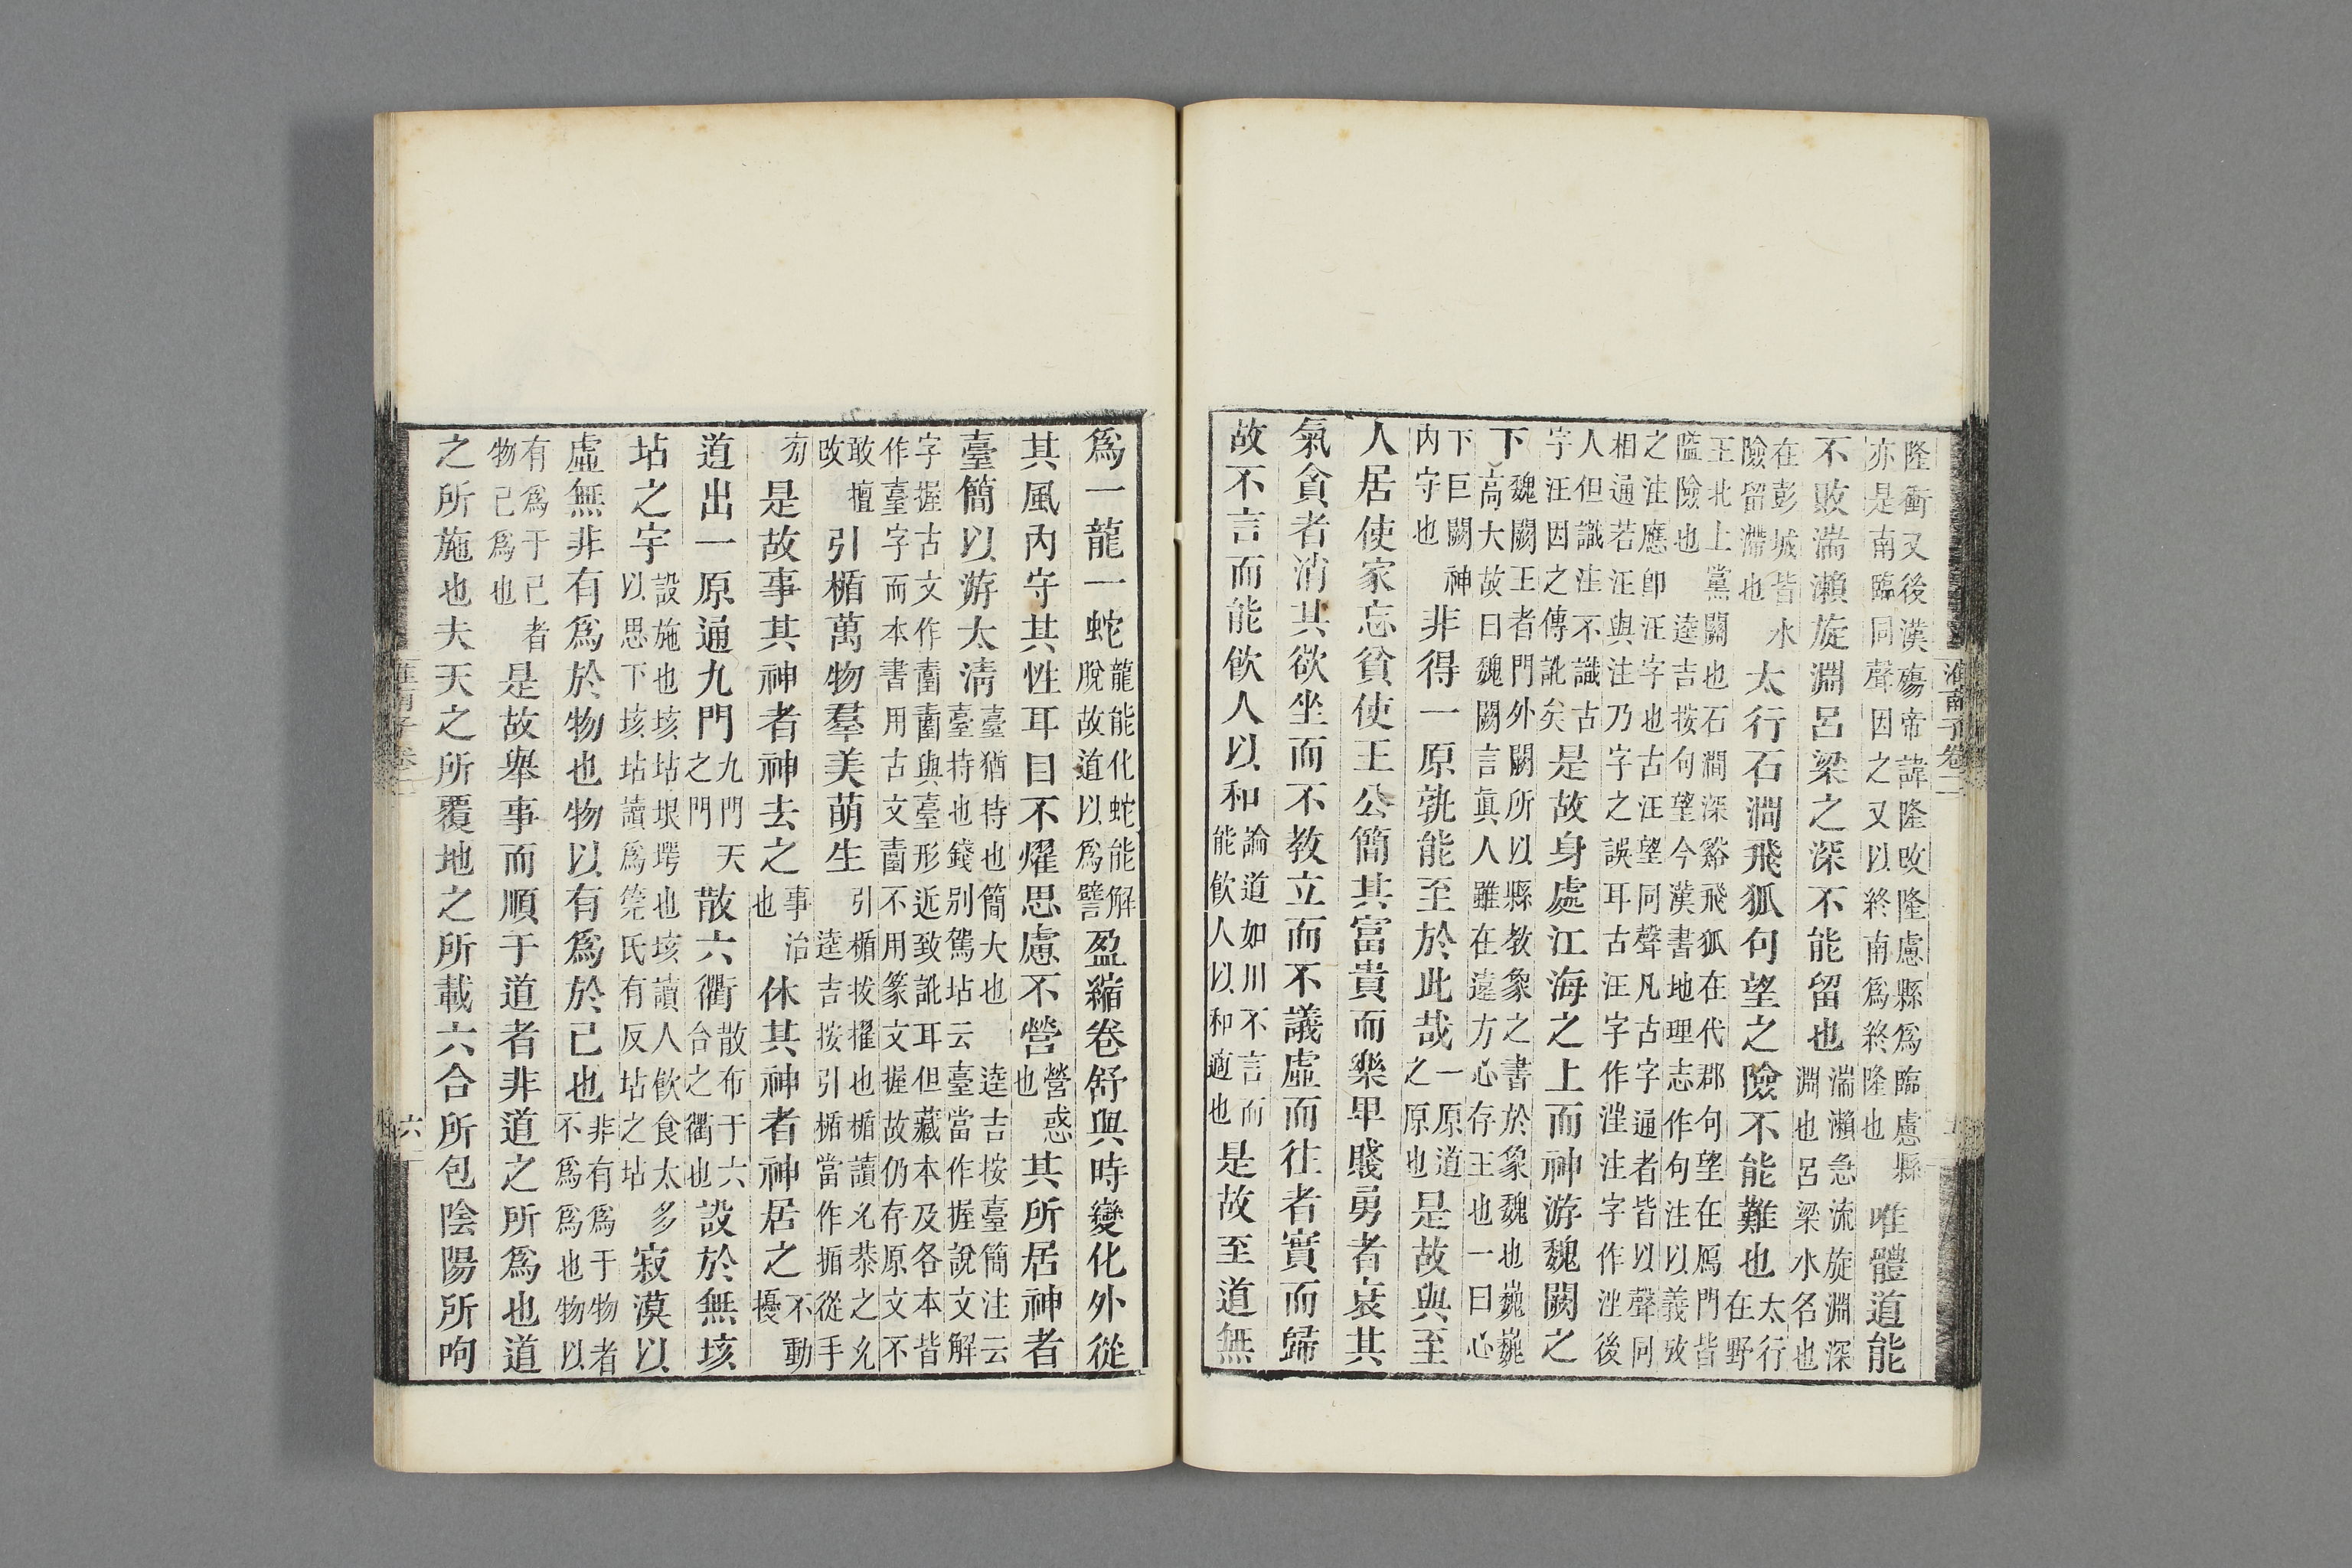 淮南子卷二
隆衝又後漢殤帝諱隆改隆慮縣爲臨慮縣亦是南臨同聲因之又以終南爲終隆也唯體道能
不敗湍瀨旋淵呂梁之深不能留也湍瀨急流旋淵深淵也呂梁水名也
在彭城皆水險留滯也太行石澗飛狐句望之險不能難也太行在野
王北上黨關也石澗深谿飛狐在代郡句望在鴈門皆隘險也逵吉按句望今漢書地理志作句注以義攷
之注應卽汪字也古汪望同聲凡古字通者皆以聲同相通若汪與注乃字之誤耳古汪字作注字作後
人但識注不識古字汪因之傳訛矣是故身處江海之上而神游魏闕之
下魏闕王者門外闕所以縣教象之書於象魏也巍巍高大故曰魏闕言眞人雖在遠方心存王也一曰心
下巨闕神内守也非得一原孰能至於此哉一原道之原也是故與至
人居使家忘貧使王公簡其富貴而樂卑賤勇者衰其
氣貪者消其欲坐而不教立而不議虛而往者實而歸
故不言而能飮人以和論道如川不言而能飮人以和適也是故至道無
爲一龍一蛇龍能化蛇能解脫故道以爲譬盈縮卷舒與時變化外從
其風內守其性耳目不燿思慮不營營惑也其所居神者
臺簡以游太淸臺猶持也簡大也臺持也錢別駕坫云逵吉按臺簡注云臺當作握說文解
字握古文作㙜㙜與臺形近致訛耳但藏本及各本皆作臺字而本書用古文㙜不用篆文握故仍存原文不
敢擅改引楯萬物羣美萌生引楯拔擢也楯讀允恭之允逵吉按引楯當作揗從手
旁是故事其神者神去之事治也休其神者神居之不動擾
道出一原通九門九門天之門散六衢散布于六合之衢也設於無垓
坫之宇設施也垓坫垠堮也垓讀人飮食太多以思下垓坫讀爲筦氏有反坫之坫寂漠以
虛無非有爲於物也物以有爲於己也非有爲于物者不爲爲也物以
有爲于己者物己爲也是故舉事而順于道者非道之所爲也道
之所施也夫天之所覆地之所載六合所包陰陽所呴
淮南子卷二
六